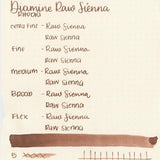 Diamine Raw Sienna
Rhodia
extra fine - Raw Sienna
Raw Sienna
fine - Raw Sienna
Raw Sienna
medium - Raw Sienna
Raw Sienna
Broad - Raw Sienna
Raw Sienna
Flex - Raw Sienna
Raw Sienna